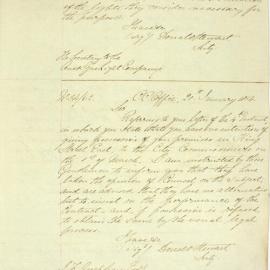 of the lights they consider necessary for
the purpose.
I have &c
Sigd Donald Stewart
Secty
The Secretary to the
Gas Light Company
No 14/62. CC. Office, 21st January
Sir
Referring to your letter of the 4 Instant
in which you state that you have no intention of
giving possession of the premises in King
Street East to the City Commissioners on
the 1st of March, I am instructed by those
Gentlemen to inform you that they have
taken the opinion of Counsel on the subject
and are advised that they have no alternative
but to insist on the performance of the
Contract, and if possession is refused
to obtain the same by the usual legal
process.
I have &c
Sigd Donald Stewart
Secty